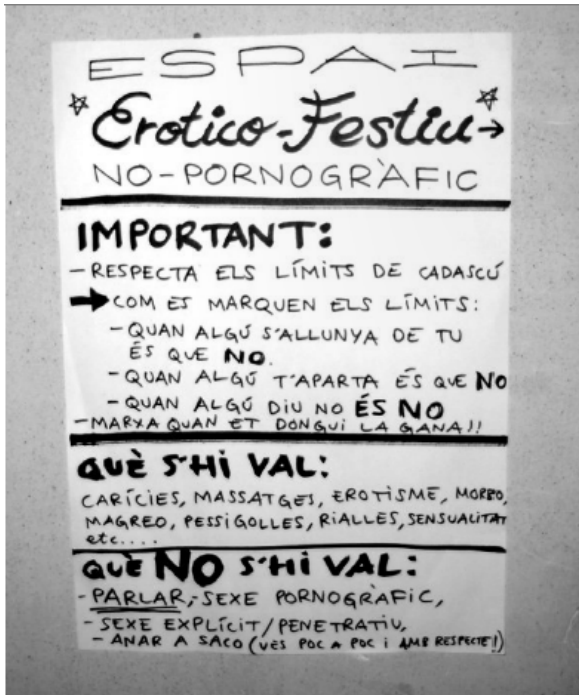 ESPAI
Erotico-Festiu→
NO-PORNOGRÀFIC
IMPORTANT:
- RESPECTA ELS LÍMITS DE CADASCÚ
➡ COM ES MARQUEN ELS LÍMITS:
- QUAN ALGÚ S'ALLUNYA DE TU
ÉS QUE NO.
- QUAN ALGÚ T'APARTA ÉS QUE NO
- QUAN ALGÚ DIU NO ÉS NO
- MARXA QUAN ET DONGUI LA GANA!!
QUÈ S'HI VAL:
CARÍCIES, MASSATGES, EROTISME, MORBO,
MAGREO, PESSIGOLLES, RIALLES, SENSUALITAT
etc....
QUÈ NO S'HI VAL:
- PARLAR, SEXE PORNOGRÀFIC,
- SEXE EXPLÍCIT/PENETRATIU,
- ANAR A SACO (VES POC A POC i AMB RESPECTE!!)